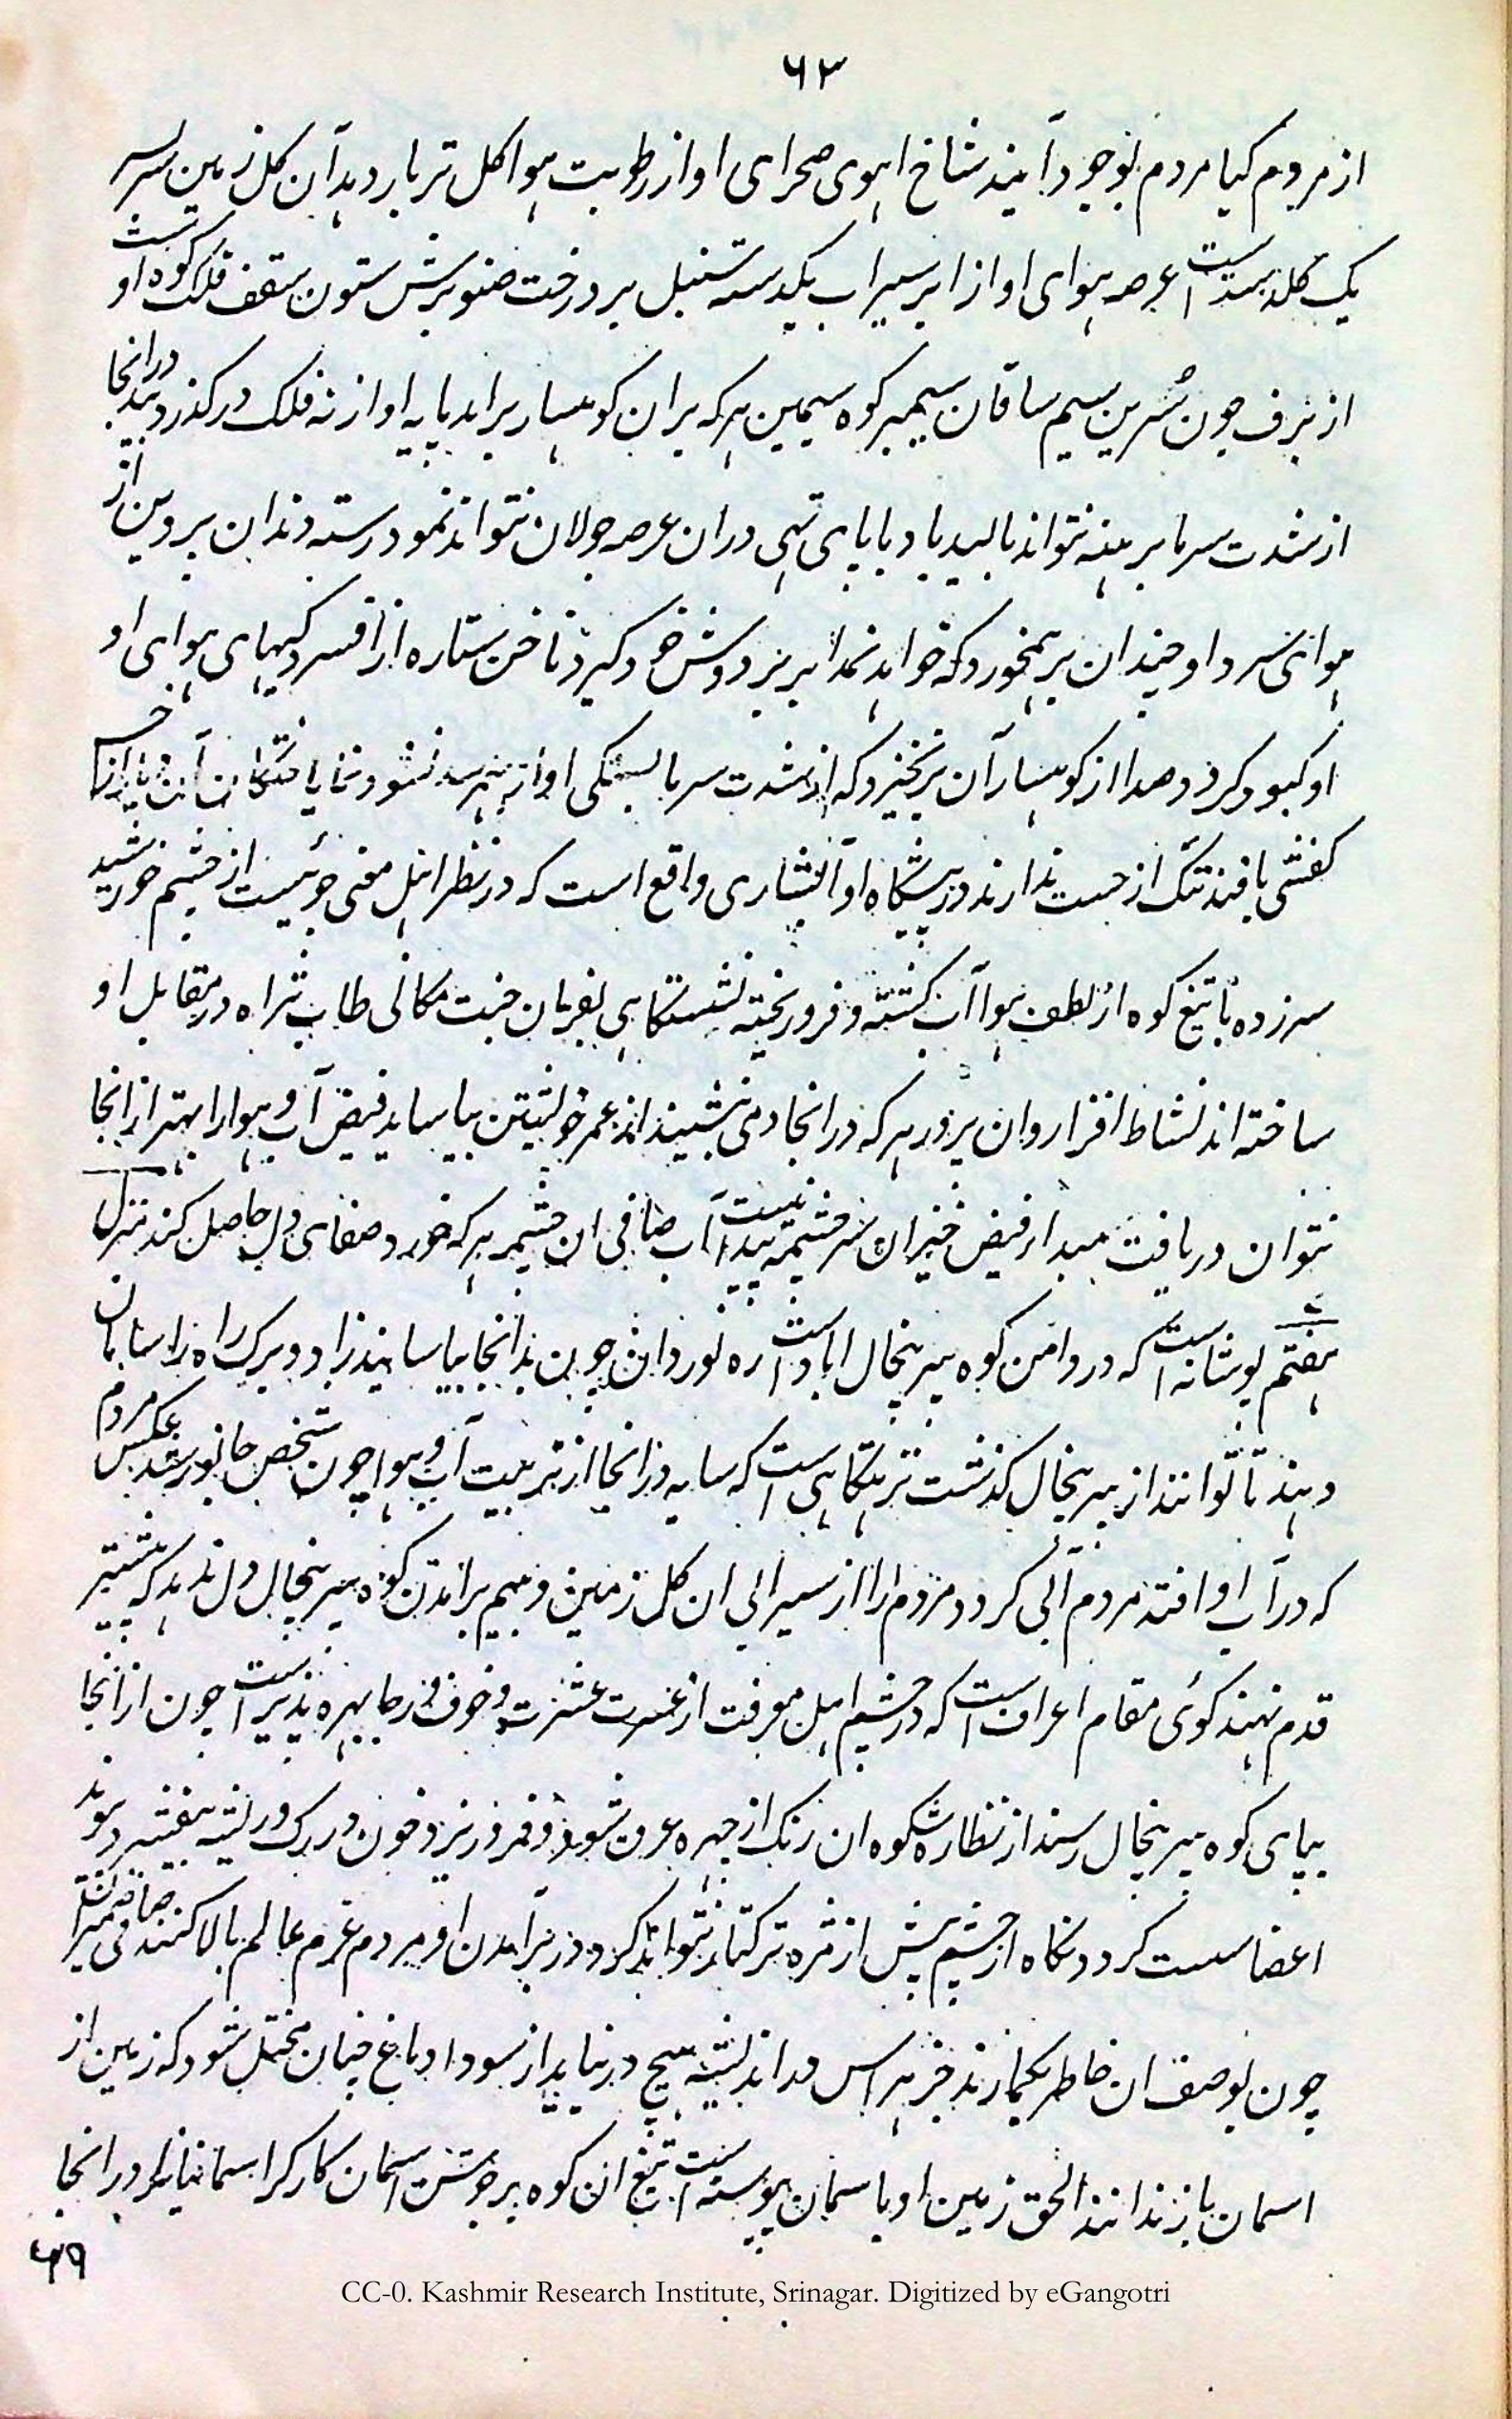 ۶۳
از مردم کیا مردم بوجود آیند شاخ اہوی صحرای او از رطوبت ہوا کل تر بار دہد آن کل زمین سر بسر
یک کلدستہ است عرصہ ہوای او از ابر سیراب یکدستہ سنبل بر درخت صنوبرش ستون سقف فلک کوہ او
از برف چون سرین سیم ساقان سیمبر کوہ سیمین ہر کہ بران کوہسار براید پایہ او از نہ فلک در کذرد درانجا
از شدت سرما برہنہ نتواند بالید باد با پای تہی دران عرصہ جولان نتواند نمود رستہ دندان پروین از
ہوای سرد او چندان برہم خورد کہ خواہد نمد ابر بر دوش خود کیرد ناخن ستارہ از افسردکیہای ہوای او
او کبود کردد صدا از کوہسار آن برنخیزد کہ از شدت سرما بستکی او از
کفشی بافند تنک از دست ندارند در پیشکاہ او آبشاری واقع است کہ در نظر اہل معنی جوئیست از چشم خورشید
سرزدہ با تیغ کوہ از لطف ہوا آب کشتہ و فرو ریختہ نشستکاہی بفرمان جنت مکانی طاب ثراہ در مقابل او
ساختہ اند نشاط افزا روان پرور ہر کہ درانجا دمی نشیند از عمر خویشتن بیاساید فیض آب و ہوا را بہتر از انجا
نتوان دریافت مبدا فیض خیز ان سرچشمہ آب صافی ان چشمہ ہر کہ خورد صفای دل حاصل کند منزل
ہفتم پوشانہ است کہ در دامن کوہ پیر پنجال اباد است رہ نوردان چون بدانجا بیاسایند زاد و برک راہ را سامان
دہند تا توانند از پیر پنجال کذشت نزہتکاہی است کہ سایہ درانجا از تربیت آب و ہوا چون شخص جانور شد عکس مردم
کہ در آب او افتد مردم آبی کردد مردم را از سیرابی ان کل زمین و بیم برامدن کوہ پیر پنجال دل ندہد کہ پیشتر
قدم نہند کوئی مقام اعراف است کہ در چشم اہل معرفت از عسرت و عشرت و خوف و رجا بہرہ پذیر است چون از انجا
بپای کوہ پیر پنجال رسند از نظارہ شکوہ ان رنک از چہرہ عرق شود و فرو ریزد و خون در رک و ریشہ بیفسرد و بند
اعضا سست کردد نکاہ از چشم پیش از مژہ ترکتاز نتواند کرد در برآمدن او مردم عزم عالم بالا کنند
چون بوصف ان خاطر بکمارند جز ہراس در اندیشہ ہیچ در نیاید از سودا دماغ چنان مختل شود کہ زمین از
اسمان باز ندانند الحق زمین او با اسمان پیوستہ است تیغ ان کوہ بر جوشن اسمان کارکر اسمانیانرا درانجا
CC-0. Kashmir Research Institute, Srinagar. Digitized by eGangotri